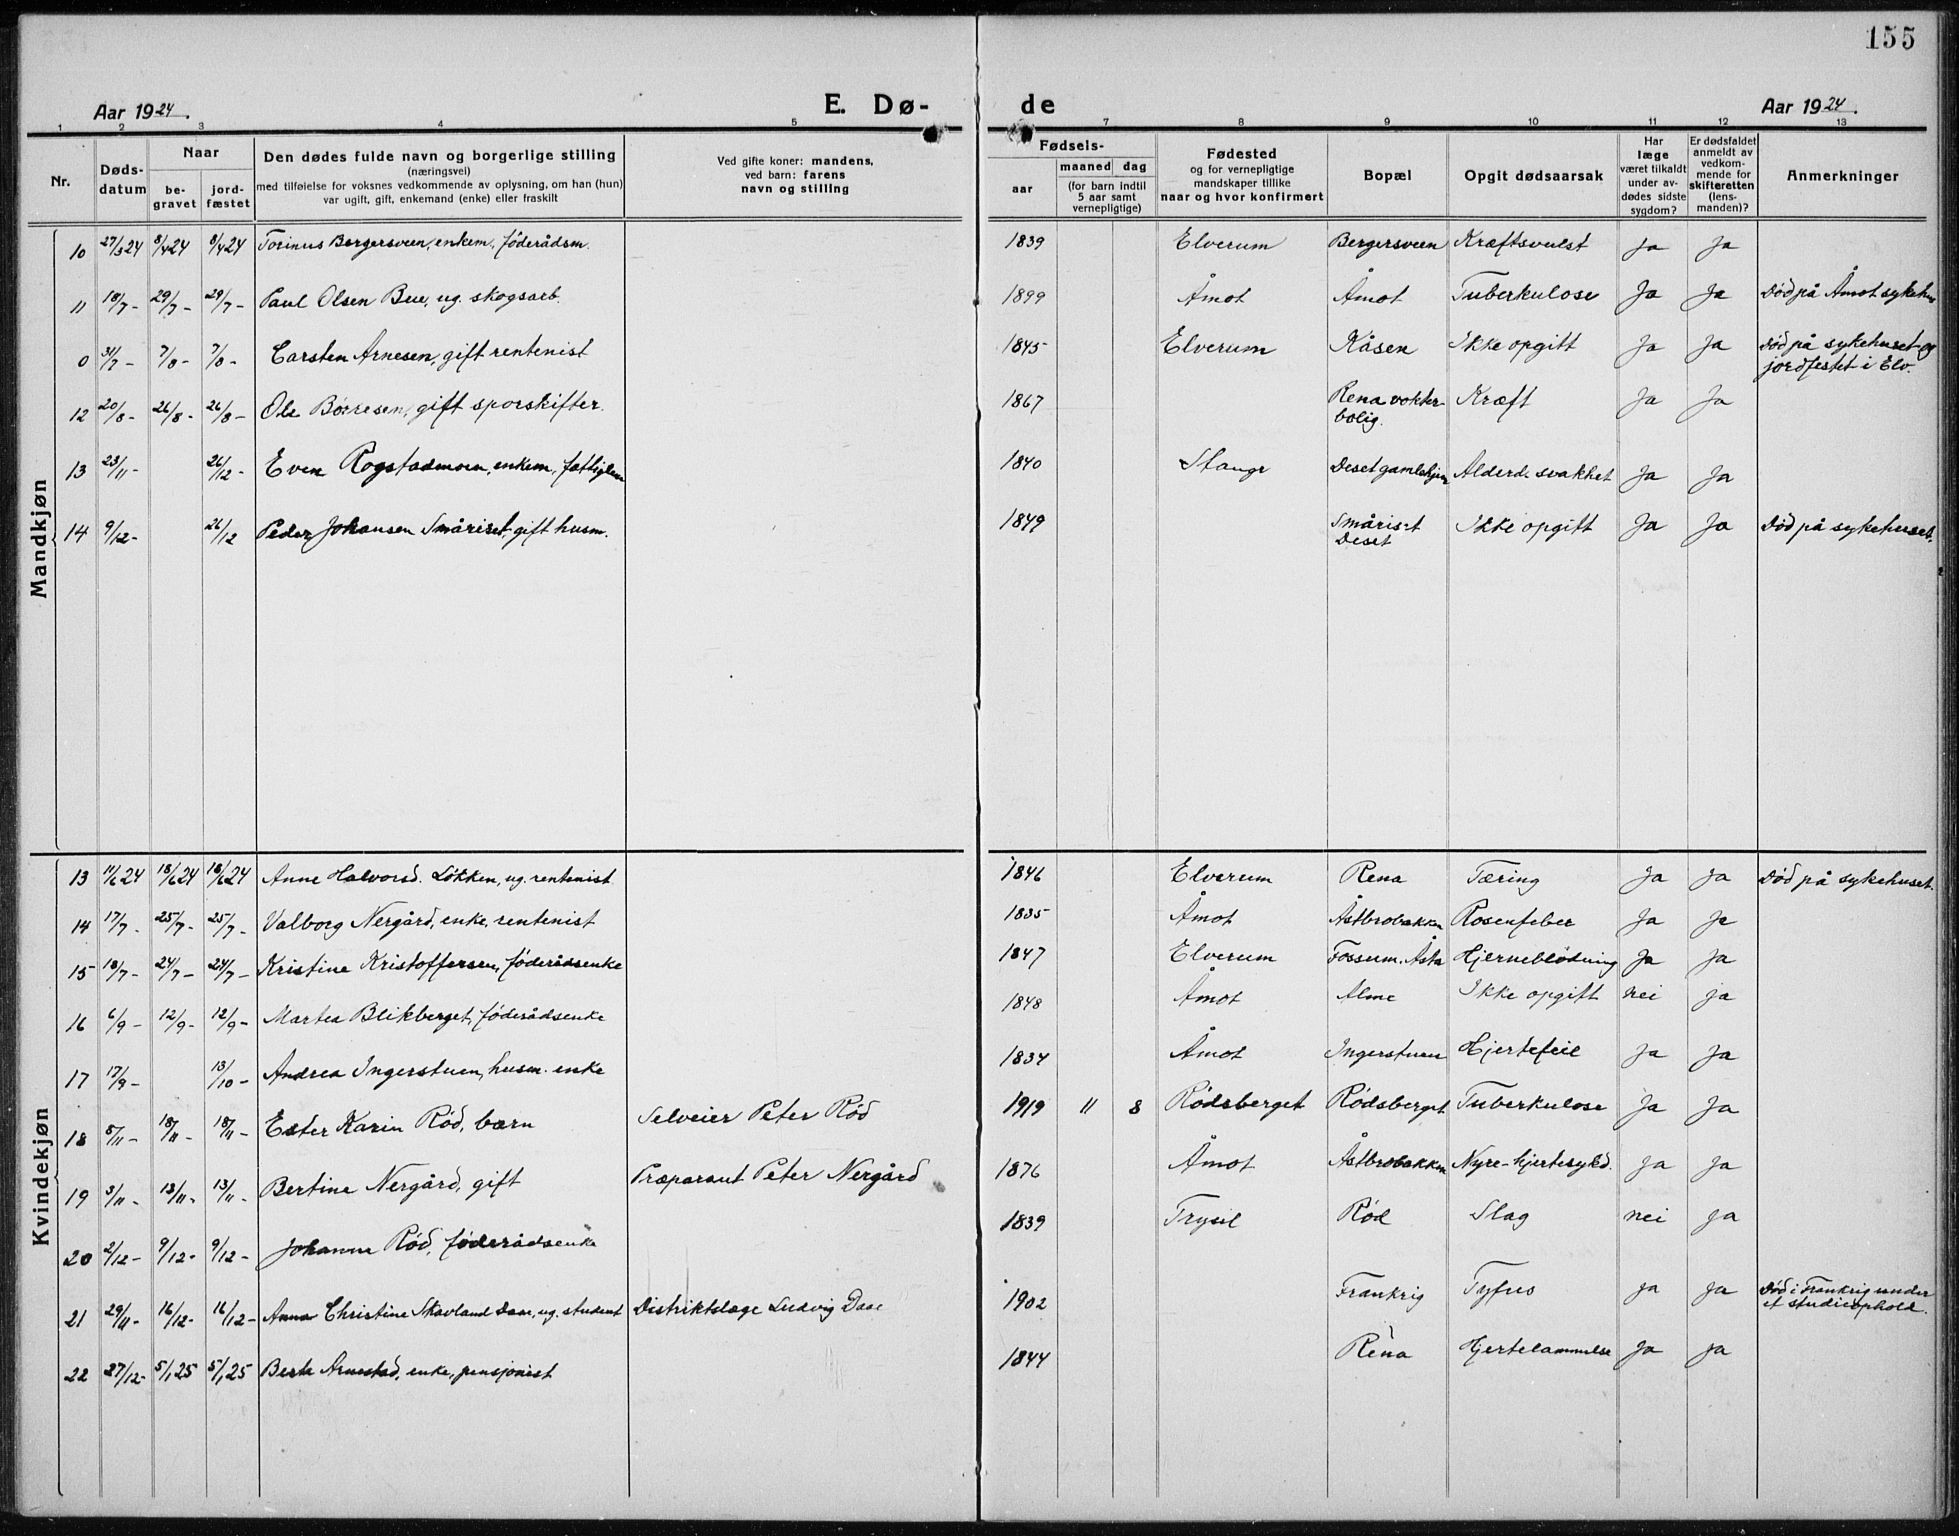 155
Aar 1924.
E. Dø-
de
Aar 1924.
1 2 3 4 5 7 8 9 10 11 12 13
Nr.
Døds-
datum
Naar
be-
gravet
jord-
fæstet
Den dødes fulde navn og borgerlige stilling
(næringsvei)
med tilføielse for voksnes vedkommende av oplysning, om han (hun)
var ugift, gift, enkemand (enke) eller fraskilt
Ved gifte koner: mandens,
ved barn: farens
navn og stilling
Fødsels-
aar
maaned dag
(for barn indtil
5 aar samt
vernepligtige)
Fødested
og for vernepligtige
mandskaper tillike
naar og hvor konfirmert
Bopæl
Opgit dødsaarsak
Har
læge
været tilkaldt
under av-
dødes sidste
sygdom?
Er dødsfaldet
anmeldt av
vedkom-
mende for
skifteretten
(lens-
manden)?
Anmerkninger
Mandkjøn
10 27/3 24 8/4 24 8/4 24 Torinus Bergersveen, enkem, føderådsm. 1839 Elverum Bergersveen Kræftsvulst Ja Ja
11 18/7 - 29/7 - 29/7 - Paul Olsen Bue, ug. skogsarb. 1899 Åmot Åmot Tuberkulose Ja Ja Død på Åmot sykehus
0 31/7 - 7/8 - 7/8 - Carsten Arnesen, gift rentenist 1845 Elverum Kåsen Ikke opgitt Ja Ja Død på sykehuset og
jordfestet i Elv.
12 20/8 - 26/8 - 26/8 - Ole Børresen, gift sporskifter. 1867 Rena vokter-
bolig. Kræft Ja Ja
13 23/11 - 26/12 - Even Rogstadmoen, enkem, fattiglem 1840 Stange Deset gamlehjem Alderd. svakhet Ja Ja
14 9/12 - 26/12 Peder Johansen Småriset, gift husm. 1849 Småriset
Deset Ikke opgitt Ja Ja Død på sykehuset.
Kvindekjøn
13 11/6 24 18/6 24 18/6 24 Anne Halvorsd. Løkken, ug. rentenist 1846 Elverum Rena Tæring Ja Ja Død på sykehuset.
14 17/7 - 25/7 - 25/7 - Valborg Nergård, enke, rentenist 1835 Åmot Åstbrobakken Rosenfeber Ja Ja
15 18/7 - 24/7 - 24/7 - Kristine Kristoffersen, føderådsenke 1847 Elverum Fossum. Åsta Hjerneblødning Ja Ja
16 6/9 - 12/9 - 12/9 - Martea Blikberget, føderådsenke 1848 Åmot Alme Ikke opgitt nei ja
17 17/9 - 13/10 - Andrea Ingerstuen, husm. enke 1834 Åmot Ingerstuen Hjertefeil Ja Ja
18 5/11 - 18/11 - 18/11 - Ester Karin Rød, barn Selveier Peter Rød 1919 11 8 Rødsberget Rødsberget Tuberkulose Ja Ja
19 3/11 - 13/11 - 13/11 - Bertine Nergård, gift Præparant Peter Nergård 1876 Åmot Åstbrobakken Nyre-hjertesykd. Ja Ja
20 2/12 - 9/12 - 9/12 - Johanne Rød, føderådsenke 1839 Trysil Rød Slag nei ja
21 29/11 - 16/12 - 16/12 - Anna Christine Skavland Daae, ug. student Distriktslæge Ludvig Daae 1902 Frankrig Tyfus Ja Ja Død i Frankrig under
et studieophold.
22 27/12 - 5/1 25 5/1 25 Berte Arnestad, enke, pensjonist 1844 Rena Hjertelammelse Ja Ja